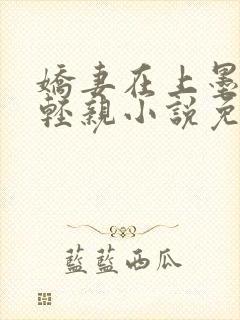 嬌妻在上墨
輕親小說免
藍藍西瓜